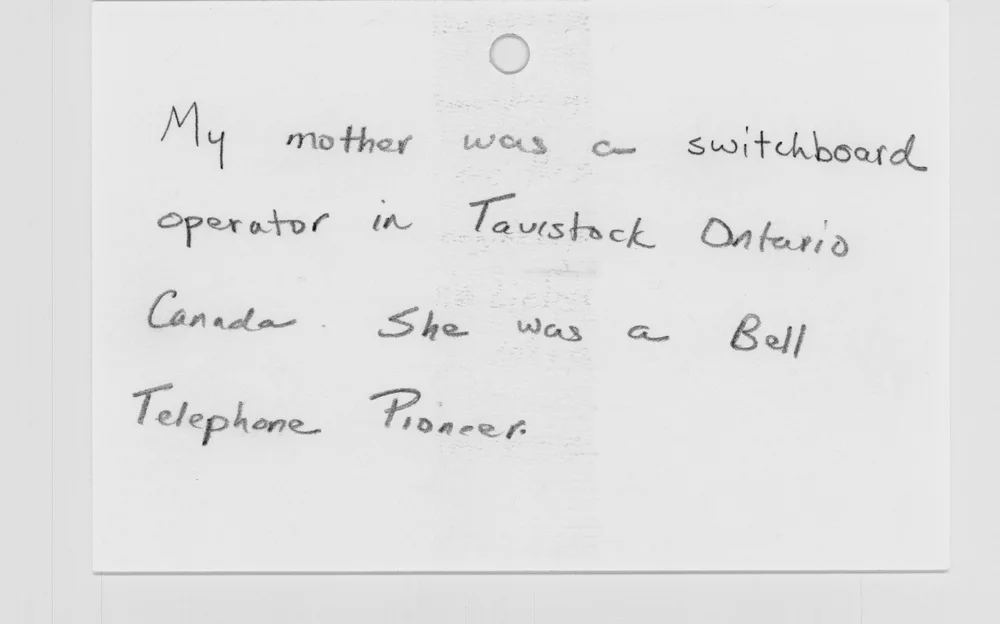 My mother was a switchboard
operator in Tavistock Ontario
Canada. She was a Bell
Telephone Pioneer.